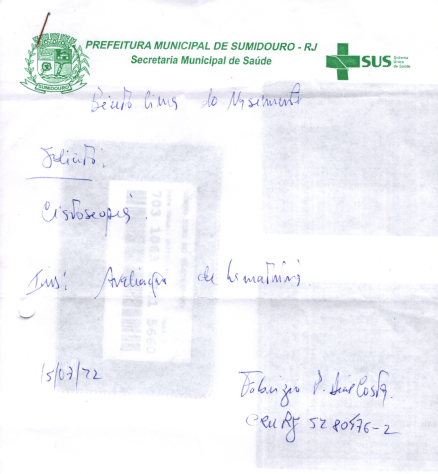 PREFEITURA MUNICIPAL DE SUMIDOURO - RJ
Secretaria Municipal de Saúde
SUMIDOURO
SUS Sistema Único de Saúde
Bento Lima do Nascimento
Solicito:
Cistoscopia.
Avaliação de hematúria.
15/07/22
Fabrizio Costa.
CRM RJ 52 80576-2